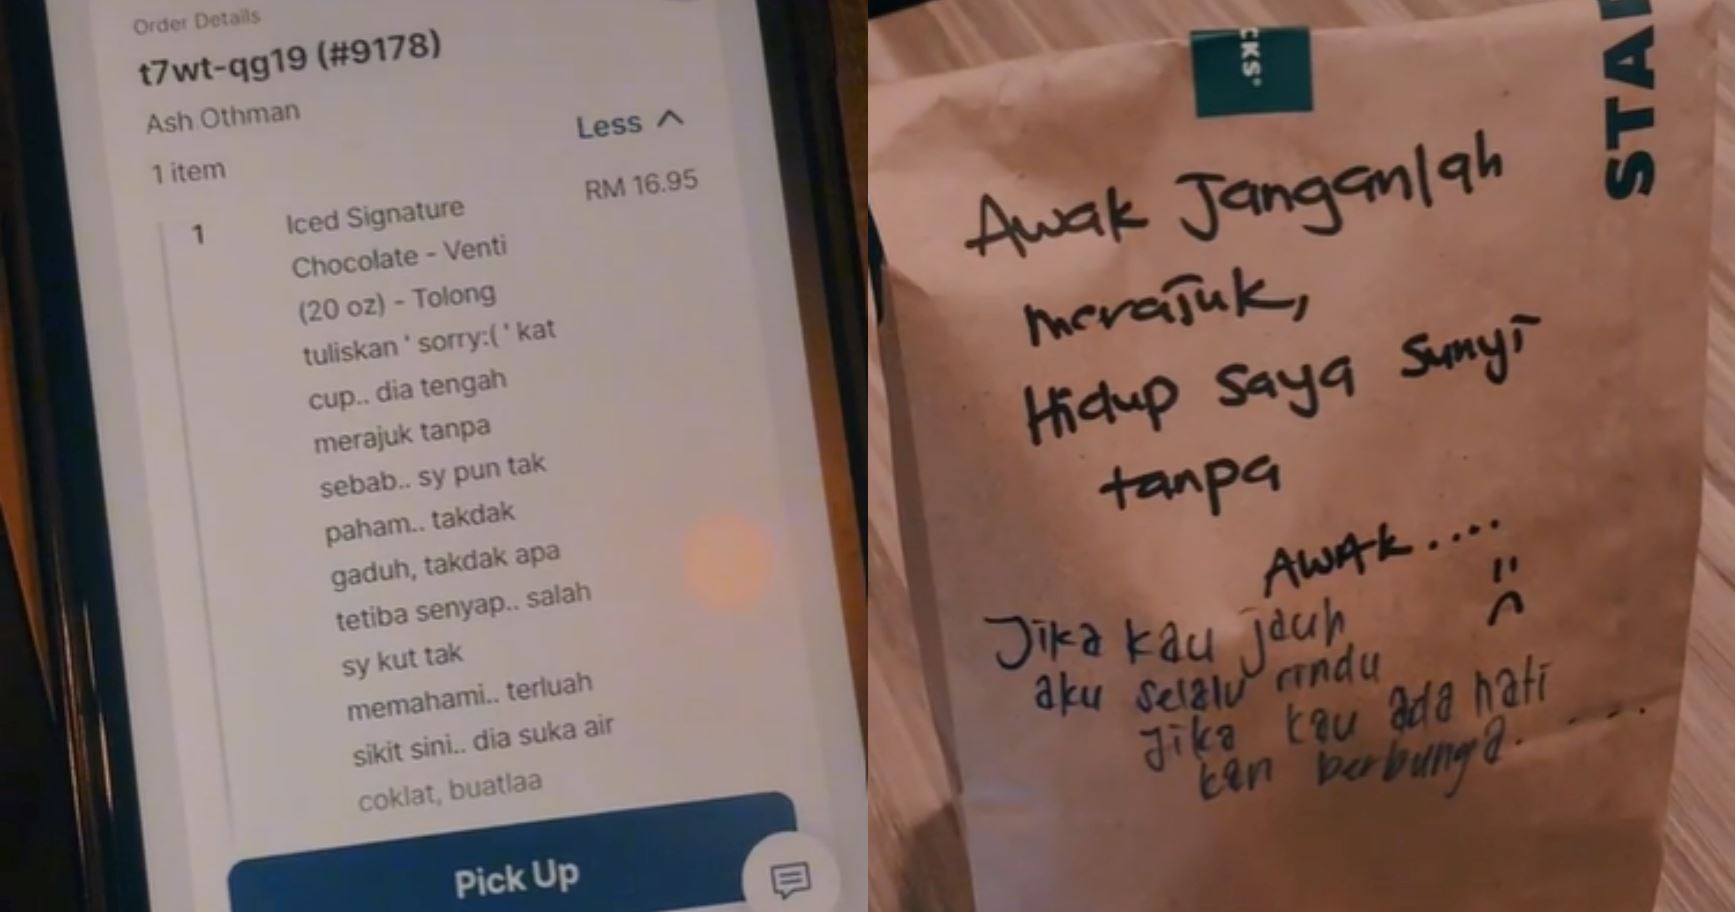 Order Details
t7wt-qg19 (#9178)
Ash Othman
Less
1 item
RM 16.95
1
Iced Signature
Chocolate - Venti
(20 oz) - Tolong
tuliskan ' sorry:( ' kat
cup.. dia tengah
merajuk tanpa
sebab.. sy pun tak
paham.. takdak
gaduh, takdak apa
tetiba senyap.. salah
sy kut tak
memahami.. terluah
sikit sini.. dia suka air
coklat, buatlaa
Pick Up
CKS
STA
Awak Janganlah
merajuk,
Hidup saya sunyi
tanpa
AWAK....
Jika kau jauh
aku selalu rindu
Jika kau ada hati
kan berbunga. ....